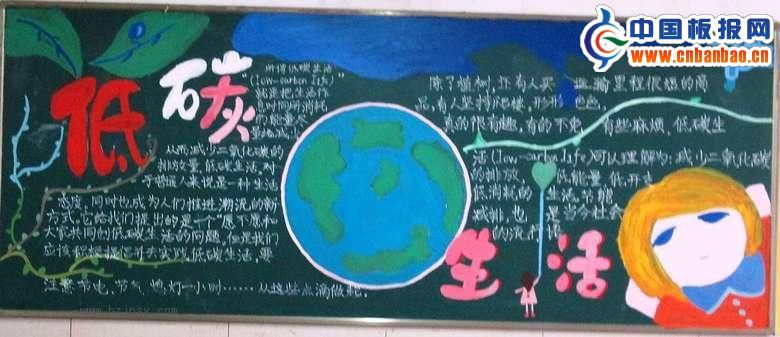 中国板报网
www.cnbanbao.cn
低碳
生活
所谓低碳生活
(low-carbon life)
就是把生活作
息时间所消耗
的能量尽
量地减少
从而减少二氧化碳的
排放量,低碳生活,对
于普通人来说是一种生活
态度,同时也成为人们推进潮流的新
方式。它给我们提出的是一个"愿不愿和
大家共同创低碳生活的问题,但是我们
应该积极提倡并去实践低碳生活,要
注意节电、节气、熄灯一小时……从这些点滴做起.
除了植树,还有人买 运输里程很短的商
品,有人坚持爬楼,形形 色色,
真的很有趣,有的不免 有些麻烦,低碳生
活(low-carbon life)可以理解为:减少二氧化碳
的排放 低能量,低开支
低消耗的 生活,节能
减排,也 是当今社会
的流行语
www.bzjosx.com